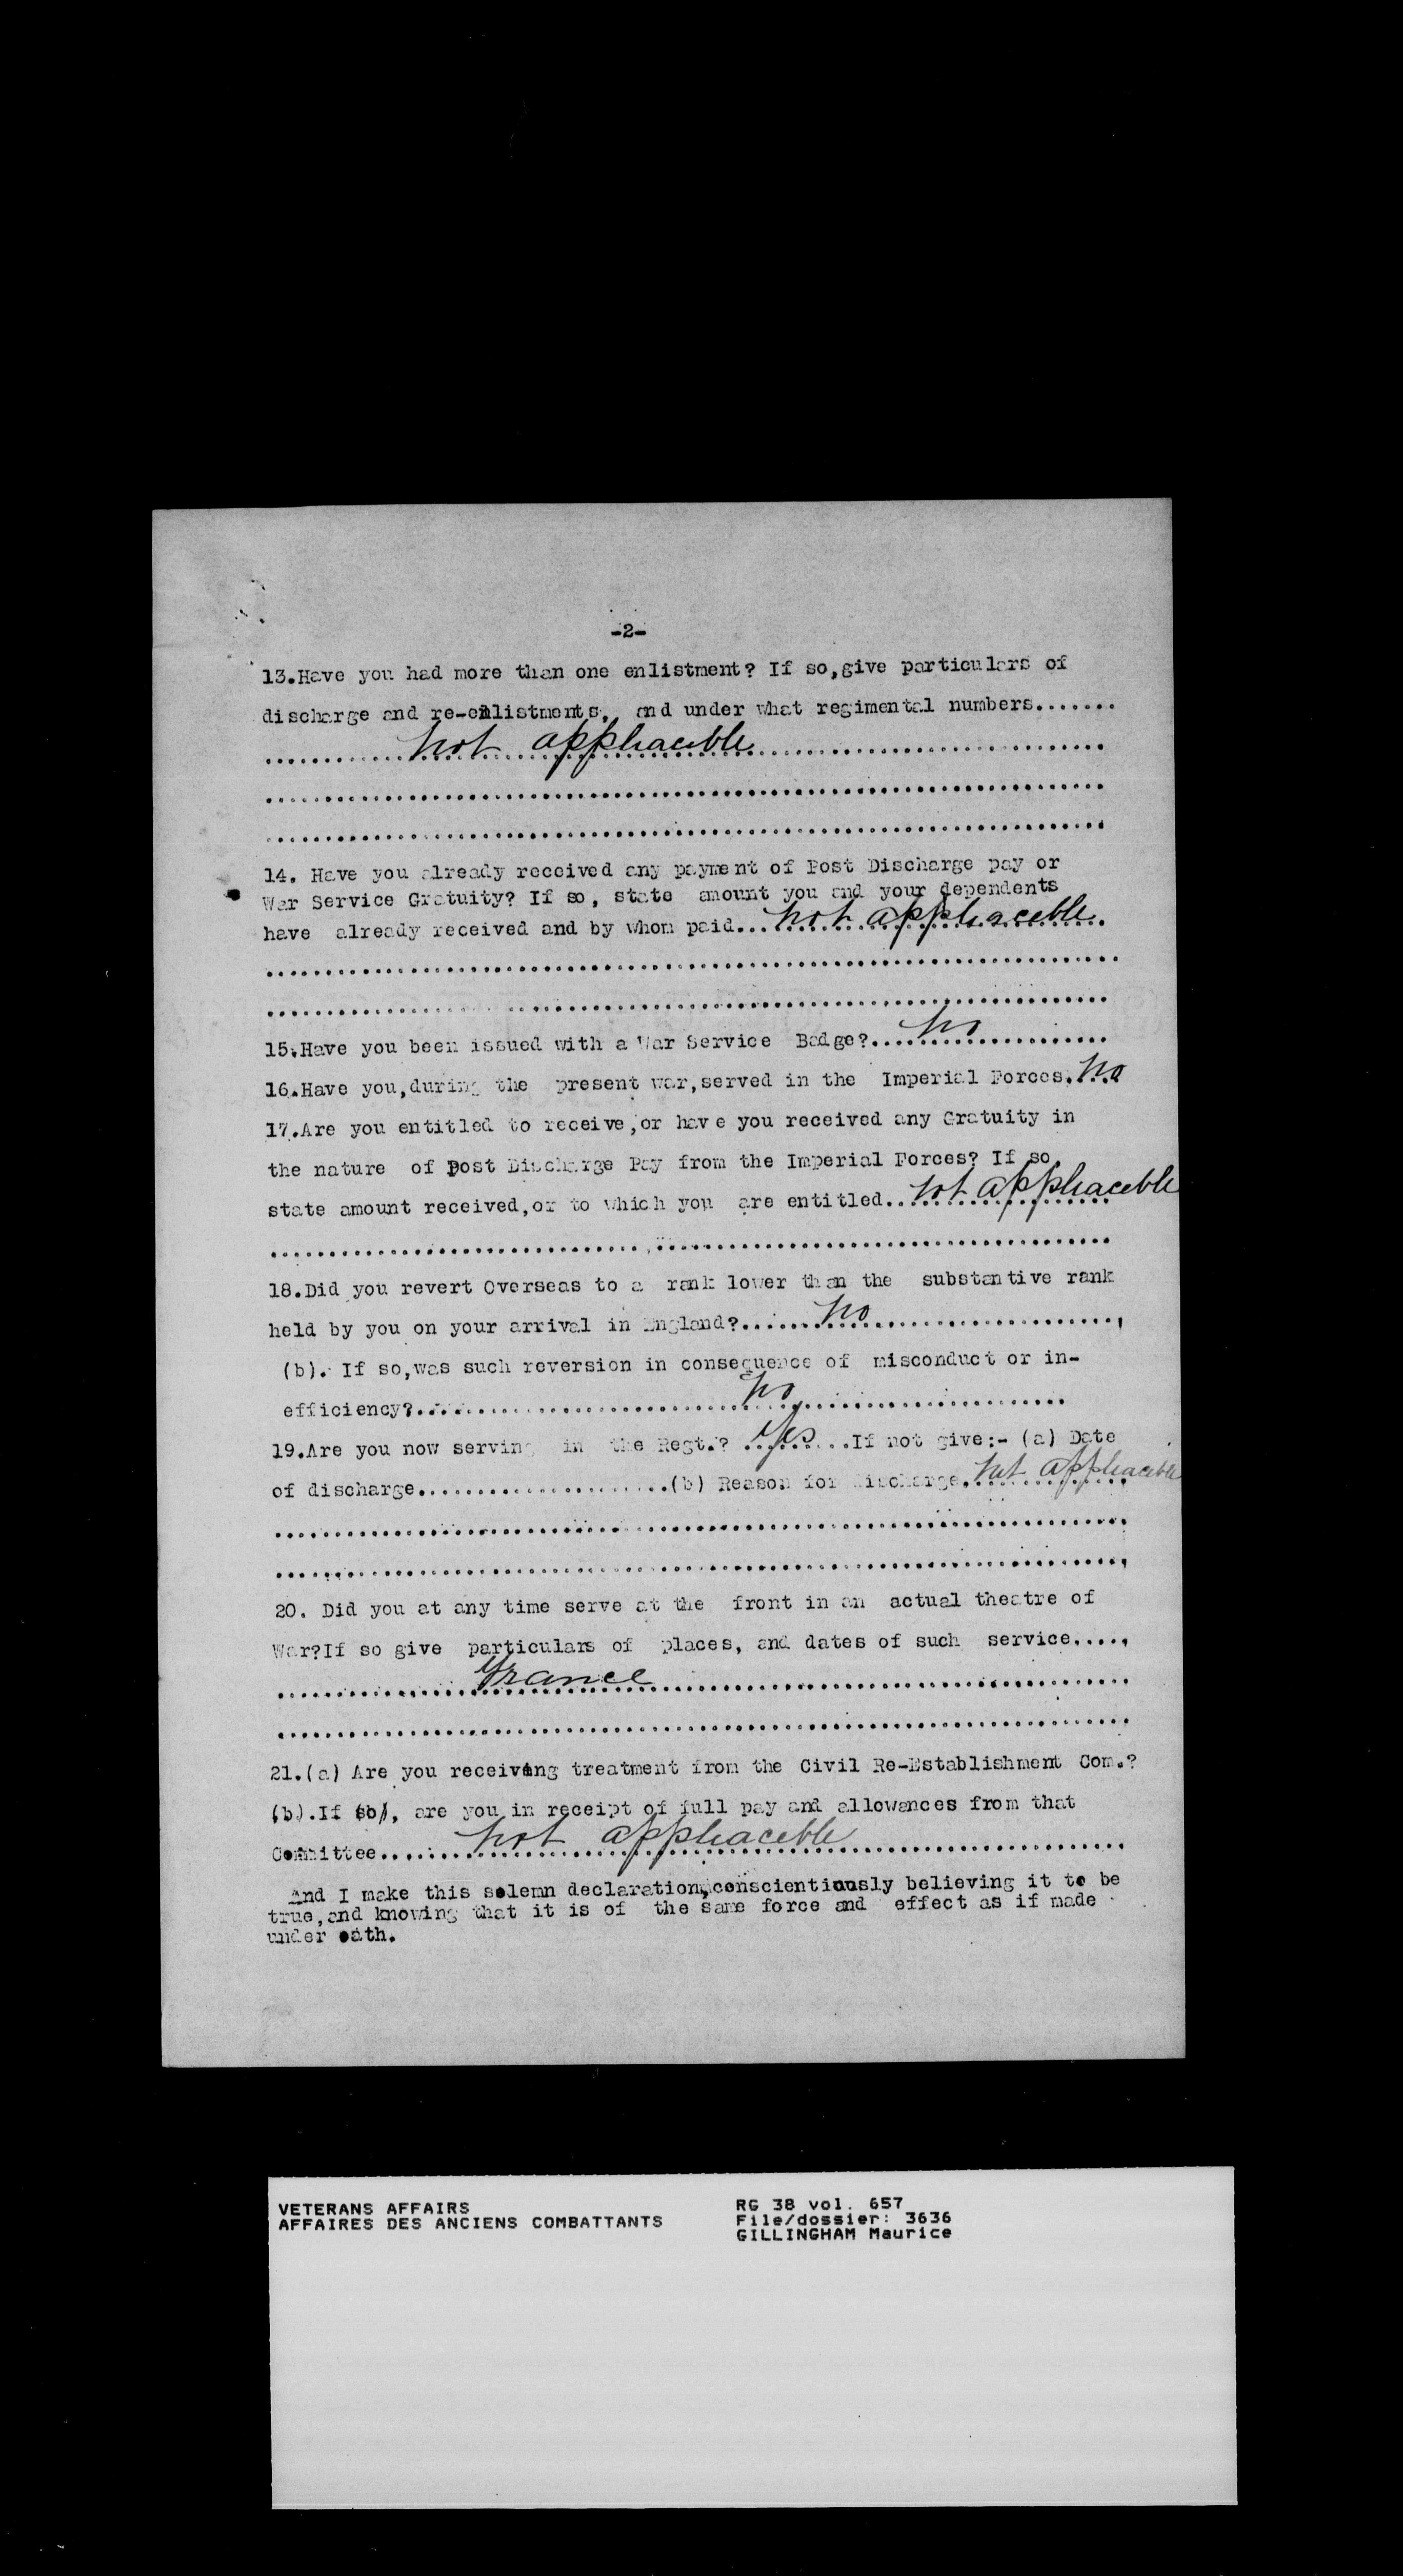 -2-
13.Have you had more than one enlistment? If so,give particulars of
discharge and re-enlistments, and under what regimental numbers.......
not appliaceble
14. Have you already received any payment of Post Discharge pay or
War Service Gratuity? If so, state amount you and your dependents
have already received and by whom paid...not appliaceble.
15.Have you been issued with a War Service Badge?....no
16.Have you,during the present war,served in the Imperial Forces.no
17.Are you entitled to receive,or have you received any Gratuity in
the nature of post Discharge Pay from the Imperial Forces? If so
state amount received,or to which you are entitled..not appliaceble
18.Did you revert Overseas to a rank lower than the substantive rank
held by you on your arrival in England?......no
(b). If so,was such reversion in consequence of misconduct or in-
efficiency?....no
19.Are you now serving in the Regt.? yes...If not give:- (a) Date
of discharge......................(b) Reason for discharge.not appliaceble
20. Did you at any time serve at the front in an actual theatre of
War?If so give particulars of places, and dates of such service....,
France
21.(a) Are you receiving treatment from the Civil Re-Establishment Com.?
(b).If so, are you in receipt of full pay and allowances from that
Committee.....not appliaceble
And I make this solemn declaration,conscientiously believing it to be
true,and knowing that it is of the same force and effect as if made
under oath.
VETERANS AFFAIRS
AFFAIRES DES ANCIENS COMBATTANTS
RG 38 vol. 657
File/dossier: 3636
GILLINGHAM Maurice